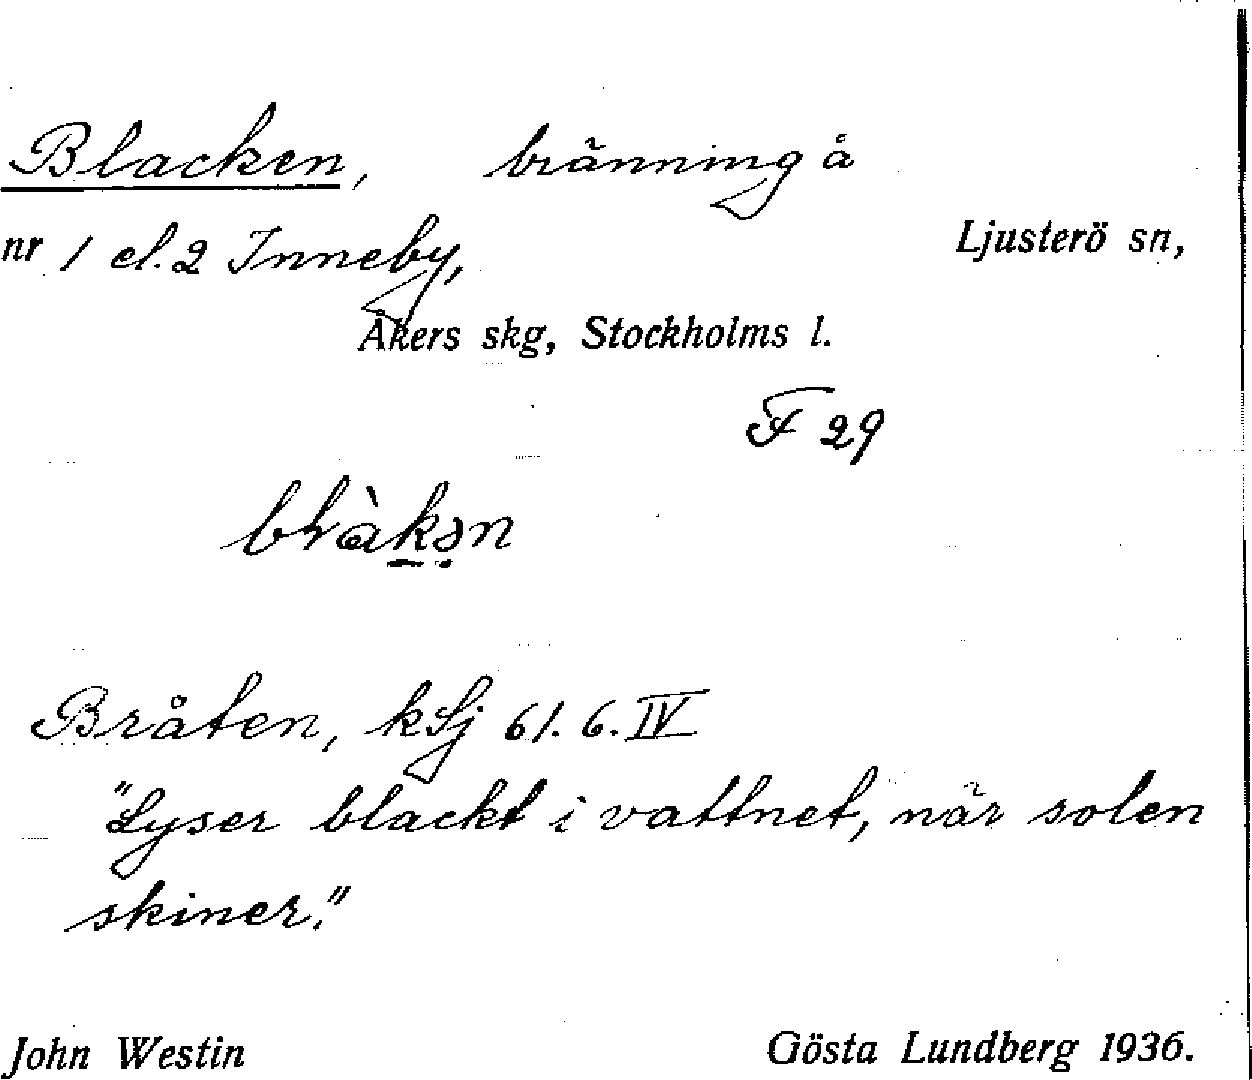 Blacken, bränning å
nr 1 el. 2 Inneby, Ljusterö sn,
Åkers skg, Stockholms l.
F 29
blàkən
Bråten, kSj 61. 6. IV
"Lyser blackt i vattnet, när solen
skiner."
John Westin Gösta Lundberg 1936.